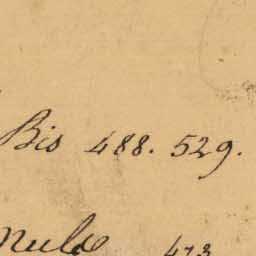 Bis 488. 529.
473